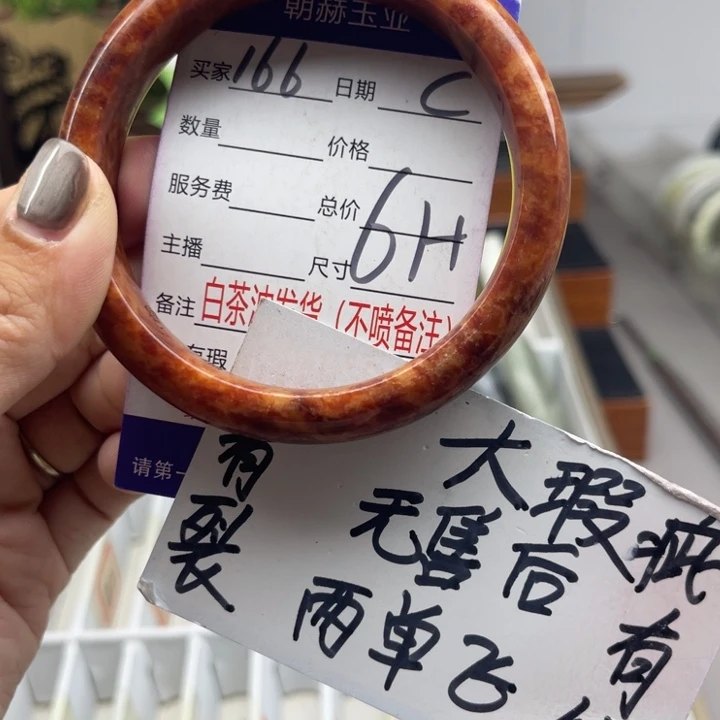 朝赫玉业
买家 166 日期 C
数量 价格
服务费 总价
主播 尺寸 6H
备注 白茶 发货（不喷备注）
有瑕
请第一
有裂
大瑕疵
无售后
有
两单飞